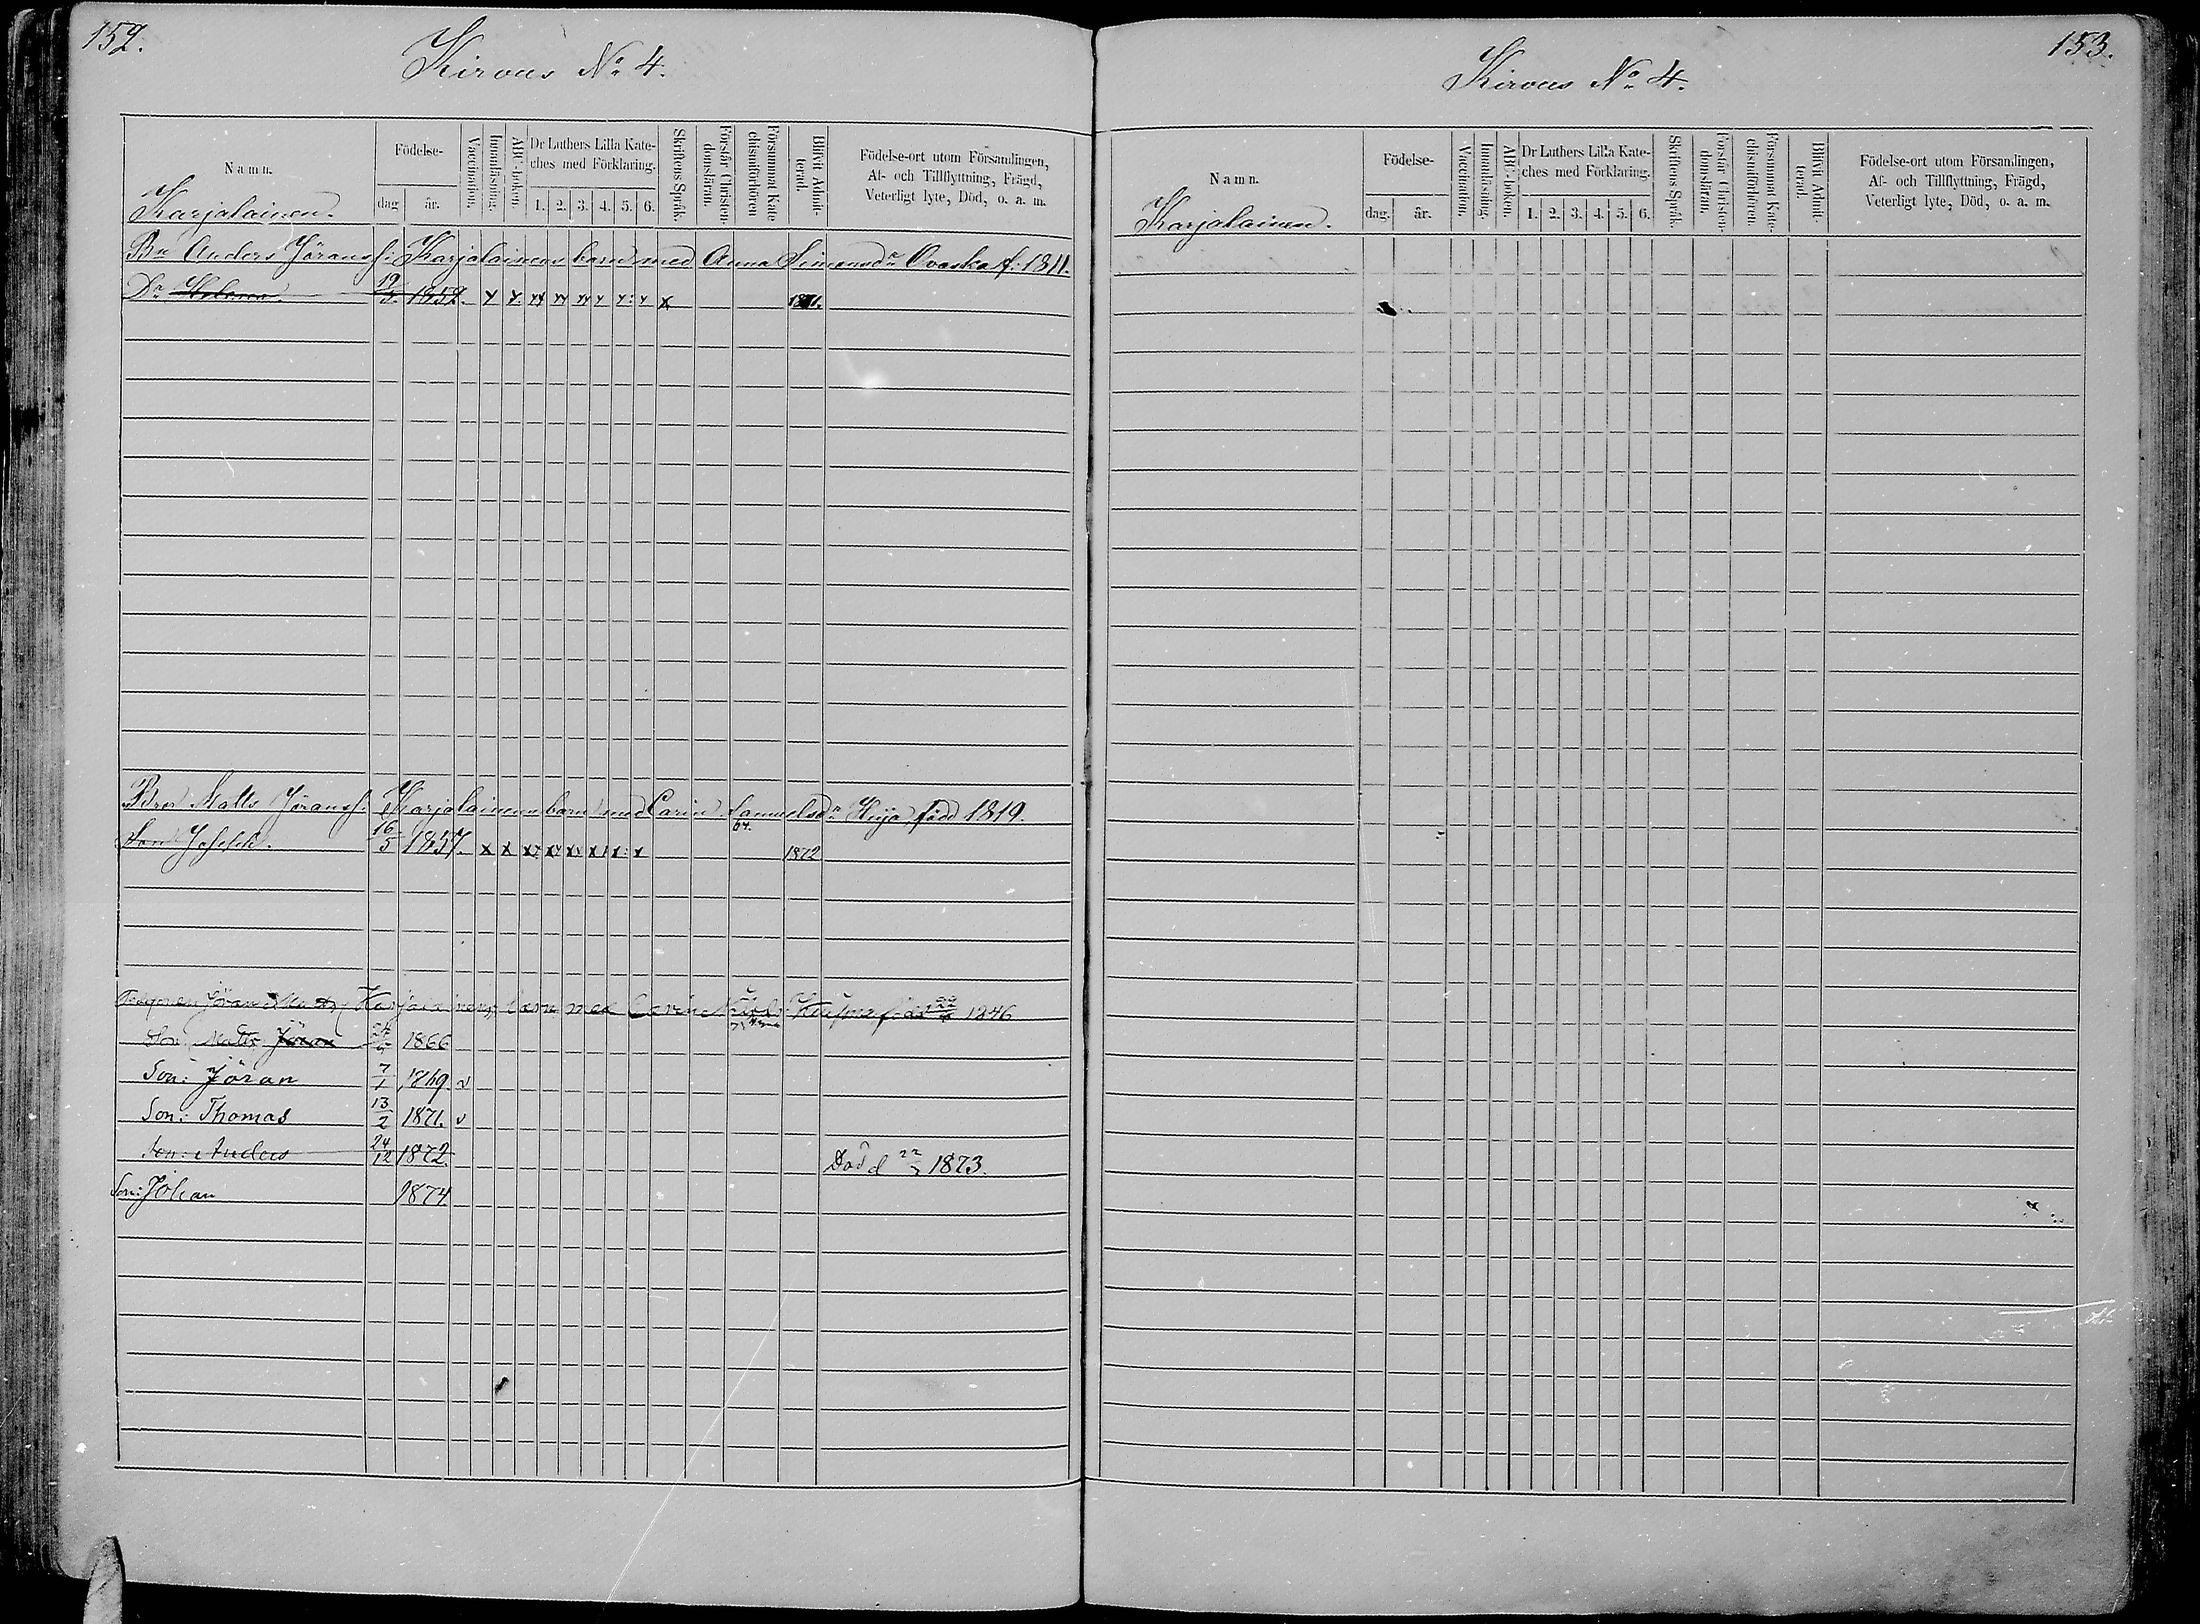 152.
Kirvus No 4.
Namn.
Födelse-
dag
år.
Vaccination.
Innanläsning.
ABC-boken.
Dr Luthers Lilla Kate-
ches med Förklaring.
1. 2. 3. 4. 5. 6.
Skriftens Språk.
Förstår Christen-
domsläran.
Försummat Kate-
chismiförhören
Blifvit Admit-
terad.
Födelse-ort utom Församlingen,
Af- och Tillflyttning, Frägd,
Veterligt lyte, Död, o. a. m.
Karjalainen.
Bn Anders Jöransf: Karjalainens barn med Anna Simonsdr Ovaska f: 1811.
Dr Helena. 19/3 1852. x x xx xx xx x x: x x 1871.
Bror Matts Jöransf: Karjalainens barn med Carin Samuelsdr Hiija född 1819.
Son Joseph. 16/5 1857. x x x: x: x: x x: x 64. 1872
Jöran Karjalainens barn med Carin 1846
Son: Matts Jöran 1866
Son: Jöran 7/1 1869. v
Son: Thomas 13/2 1871. v
Son: Anders 24/12 1872. Död d 22/7 1873.
Son: Johan 1874
153.
Kirvus No 4.
Namn.
Födelse-
dag.
år.
Vaccination.
Innanläsning.
ABC-boken.
Dr Luthers Lilla Kate-
ches med Förklaring.
1. 2. 3. 4. 5. 6.
Skriftens Språk.
Förstår Christen-
domsläran.
Försummat Kate-
chismiförhören.
Blifvit Admit-
terad.
Födelse-ort utom Församlingen,
Af- och Tillflyttning, Frägd,
Veterligt lyte, Död, o. a. m.
Karjalainen.